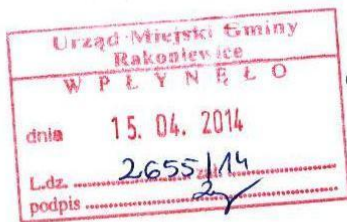 Urząd Miejski Gminy
Rakoniewice
W P Ł Y N Ę Ł O
dnia 15. 04. 2014
L.dz. 2655/14 zał.
podpis